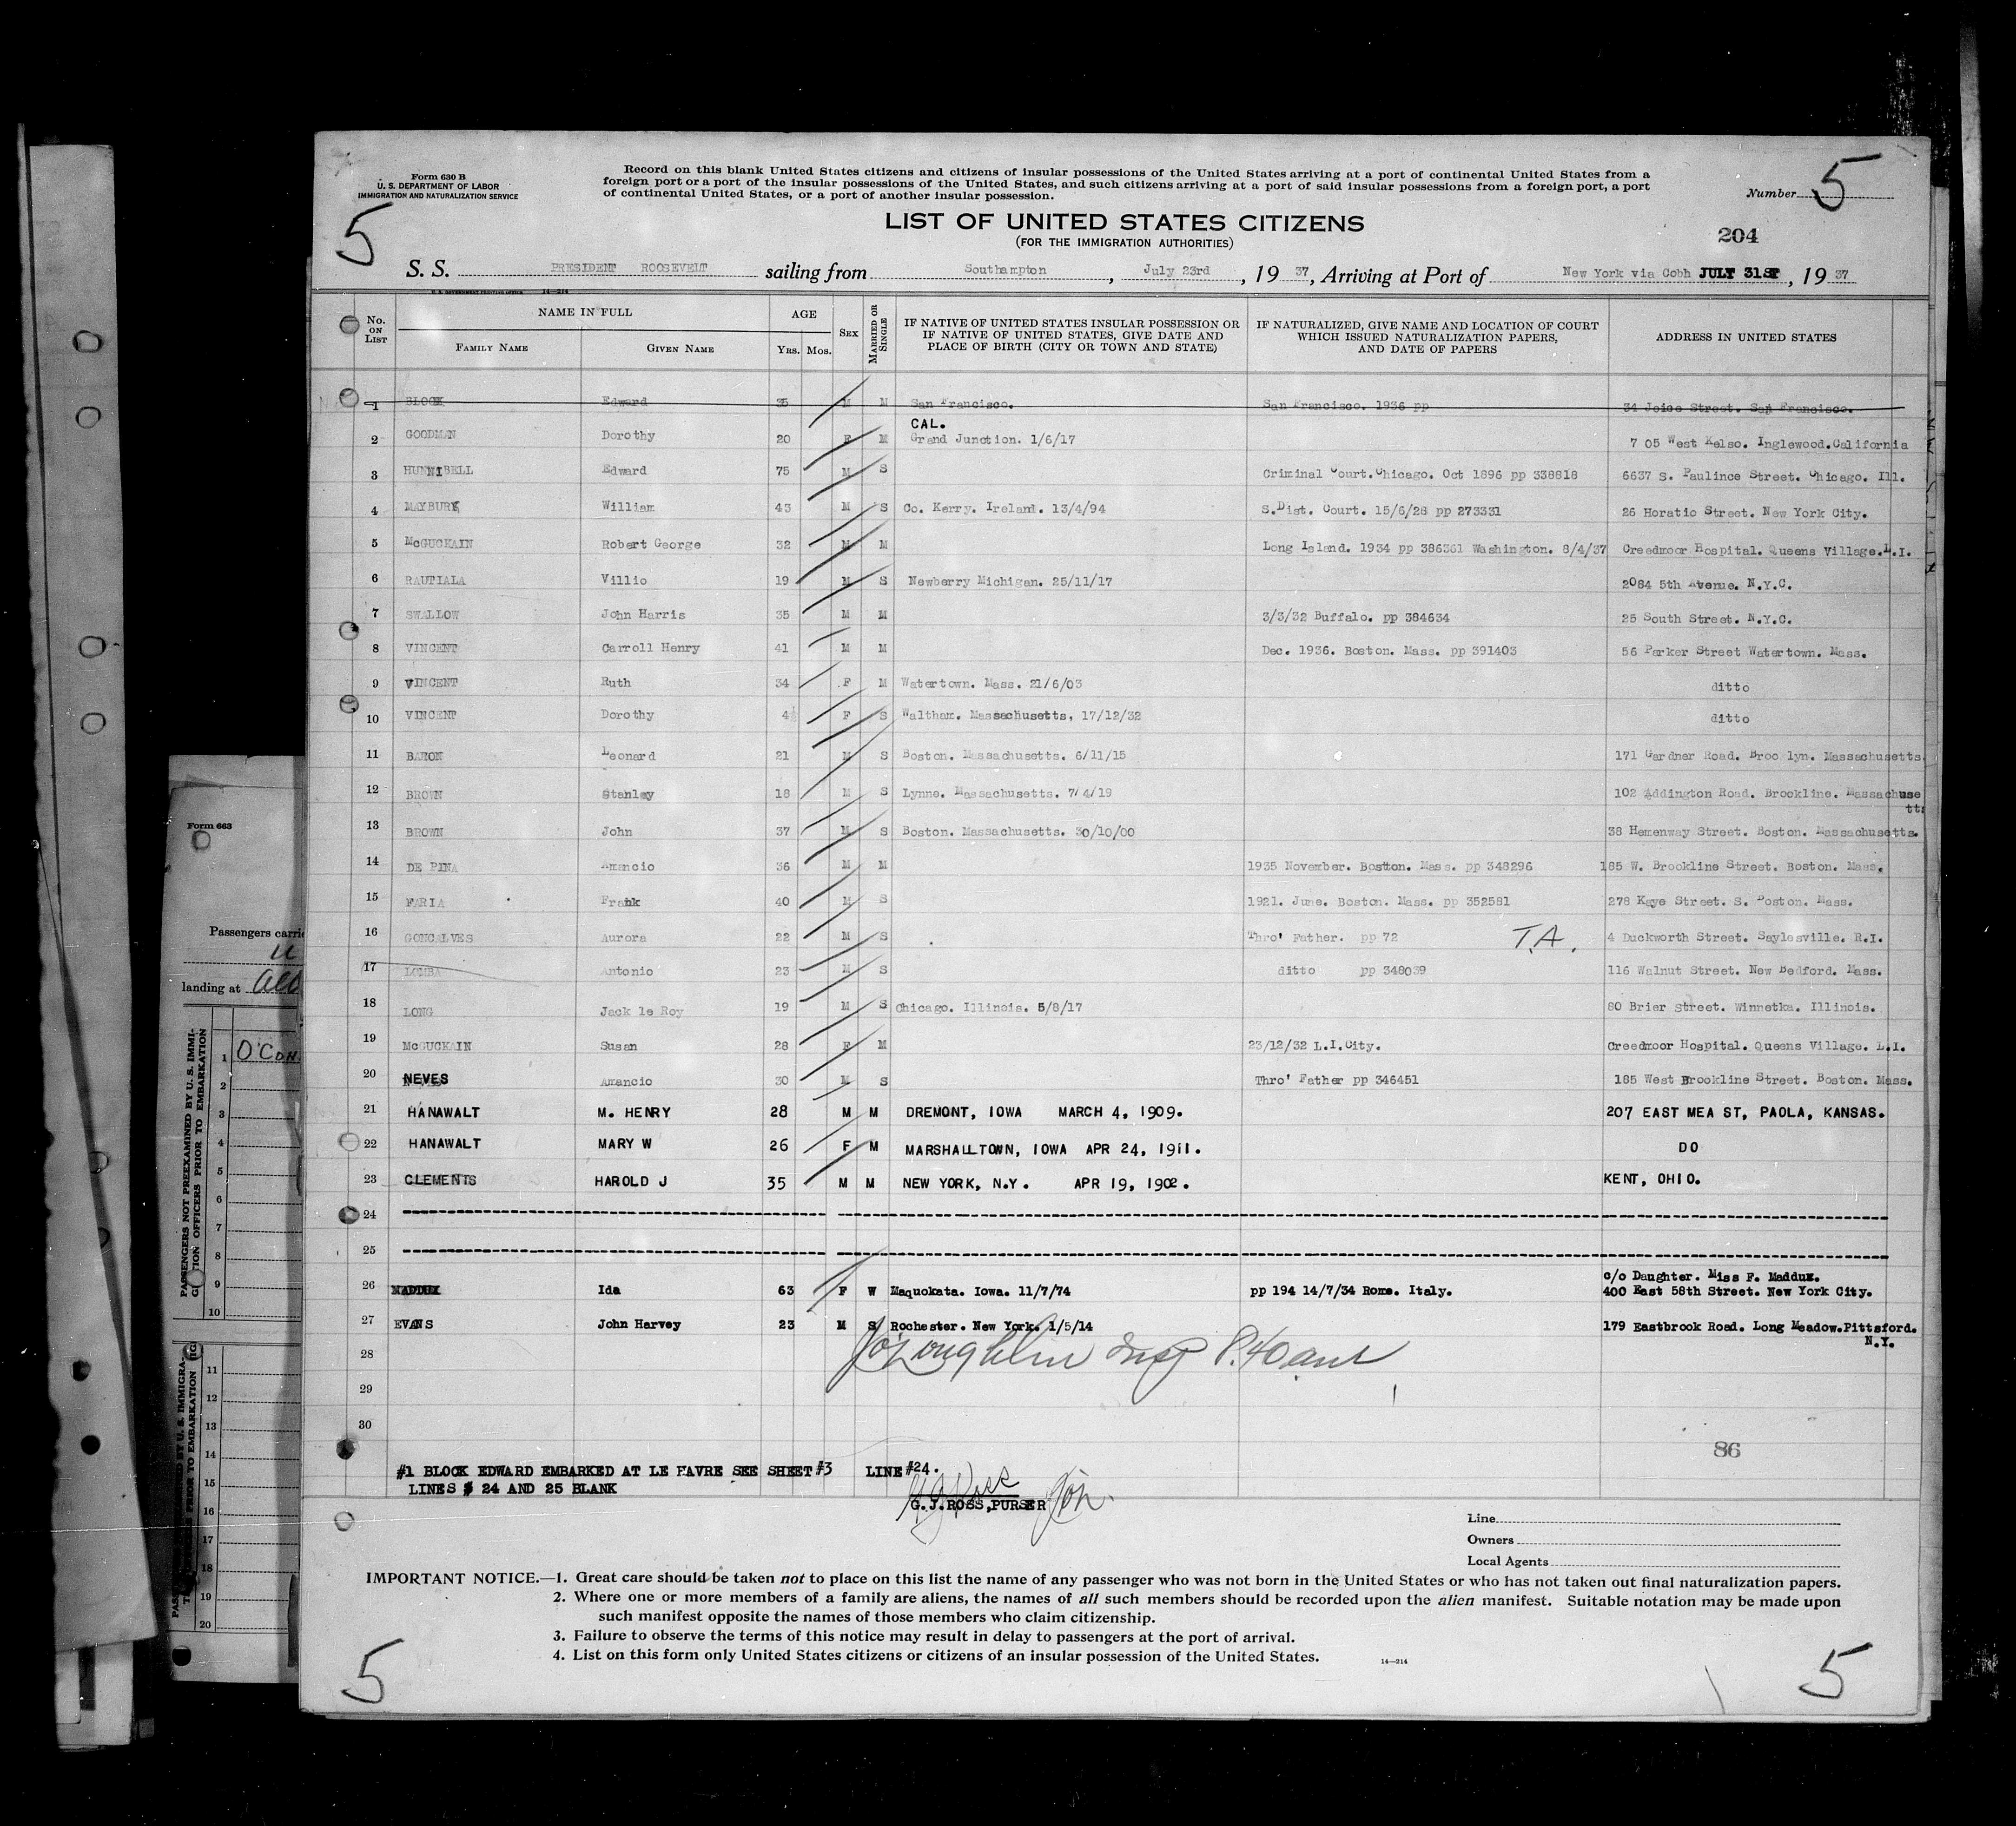 Form 630 B
U. S. DEPARTMENT OF LABOR
IMMIGRATION AND NATURALIZATION SERVICE
Record on this blank United States citizens and citizens of insular possessions of the United States arriving at a port of continental United States from a
foreign port or a port of the insular possessions of the United States, and such citizens arriving at a port of said insular possessions from a foreign port, a port
of continental United States, or a port of another insular possession.
Number 5
5
LIST OF UNITED STATES CITIZENS
(FOR THE IMMIGRATION AUTHORITIES)
204
S. S. PRESIDENT ROOSEVELT sailing from Southampton, July 23rd, 19 37, Arriving at Port of New York via Cobh JULY 31ST, 19 37
No. ON LIST
NAME IN FULL
FAMILY NAME GIVEN NAME
AGE
Yrs. Mos.
SEX
MARRIED OR SINGLE
IF NATIVE OF UNITED STATES INSULAR POSSESSION OR
IF NATIVE OF UNITED STATES, GIVE DATE AND
PLACE OF BIRTH (CITY OR TOWN AND STATE)
IF NATURALIZED, GIVE NAME AND LOCATION OF COURT
WHICH ISSUED NATURALIZATION PAPERS,
AND DATE OF PAPERS
ADDRESS IN UNITED STATES
1 BLOCK Edward 35 M M San Francisco. San Francisco. 1936 pp 34 Joice Street. San Francisco.
CAL.
2 GOODMAN Dorothy 20 F M Grand Junction. 1/6/17 7 05 West Kelso. Inglewood.California
3 HUNNIBELL Edward 75 M S Criminal Court.Chicago. Oct 1896 pp 338818 6637 S. Paulince Street. Chicago. Ill.
4 MAYBURY William 43 M S Co. Kerry. Ireland. 13/4/94 S.Dist. Court. 15/6/28 pp 273331 26 Horatio Street. New York City.
5 McGUCKAIN Robert George 32 M M Long Island. 1934 pp 386361 Washington. 8/4/37 Creedmoor Hospital. Queens Village.L.I.
6 RAUTIALA Villio 19 M S Newberry Michigan. 25/11/17 2084 5th Avenue. N.Y.C.
7 SWALLOW John Harris 35 M M 3/3/32 Buffalo. pp 384634 25 South Street. N.Y.C.
8 VINCENT Carroll Henry 41 M M Dec. 1936. Boston. Mass. pp 391403 56 Parker Street Watertown. Mass.
9 VINCENT Ruth 34 F M Watertown. Mass. 21/6/03 ditto
10 VINCENT Dorothy 4½ F S Waltham. Massachusetts. 17/12/32 ditto
11 BARON Leonard 21 M S Boston. Massachusetts. 6/11/15 171 Gardner Road. Broo lyn. Massachusetts
12 BROWN Stanley 18 M S Lynne. Massachusetts. 7/4/19 102 Addington Road. Brockline. Massachuse
tts
13 BROWN John 37 M S Boston. Massachusetts. 30/10/00 38 Hemenway Street. Boston. Massachusetts.
14 DE PINA Amancio 36 M M 1935 November. Boston. Mass. pp 348296 185 W. Brookline Street. Boston. Mass.
15 FARIA Frank 40 M S 1921. June. Boston. Mass. pp 352581 278 Kaye Street. S. Boston. Mass.
16 GONCALVES Aurora 22 M S Thro' Father. pp 72 T.A. 4 Duckworth Street. Saylesville. R.I.
17 LOMBA Antonio 23 M S ditto pp 348039 116 Walnut Street. New Bedford. Mass.
18 LONG Jack le Roy 19 M S Chicago. Illinois. 5/8/17 80 Brier Street. Winnetka. Illinois.
19 McGUCKAIN Susan 28 F M 23/12/32 L.I.City. Creedmoor Hospital. Queens Village. L.I.
20 NEVES Amancio 30 M S Thro' Father pp 346451 185 West Brookline Street. Boston. Mass.
21 HANAWALT M. HENRY 28 M M DREMONT, IOWA MARCH 4, 1909. 207 EAST MEA ST, PAOLA, KANSAS.
22 HANAWALT MARY W 26 F M MARSHALLTOWN, IOWA APR 24, 1911. DO
23 CLEMENTS HAROLD J 35 M M NEW YORK, N.Y. APR 19, 1902. KENT, OHIO.
24
25
c/o Daughter. Miss F. Maddux.
26 MADDUX Ida 63 F W Maquokata. Iowa. 11/7/74 pp 194 14/7/34 Rome. Italy. 400 East 58th Street. New York City.
27 EVANS John Harvey 23 M S Rochester. New York. 1/5/14 179 Eastbrook Road. Long Meadow.Pittsford.
N.Y.
28
29
30
86
#1 BLOCK EDWARD EMBARKED AT LE HAVRE SEE SHEET #3 LINE #24.
LINES # 24 AND 25 BLANK
G. J. ROSS, PURSER
Line
Owners
Local Agents
IMPORTANT NOTICE.—1. Great care should be taken not to place on this list the name of any passenger who was not born in the United States or who has not taken out final naturalization papers.
2. Where one or more members of a family are aliens, the names of all such members should be recorded upon the alien manifest. Suitable notation may be made upon
such manifest opposite the names of those members who claim citizenship.
3. Failure to observe the terms of this notice may result in delay to passengers at the port of arrival.
4. List on this form only United States citizens or citizens of an insular possession of the United States.
14—214
5
5
Form 663
Passengers carri
landing at
PASSENGERS NOT PREEXAMINED BY U. S. IMMI-
TION OFFICERS PRIOR TO EMBARKATION
1 O'Con
2
3
4
5
6
7
8
9
10
11
12
13
14
15
16
17
18
19
20